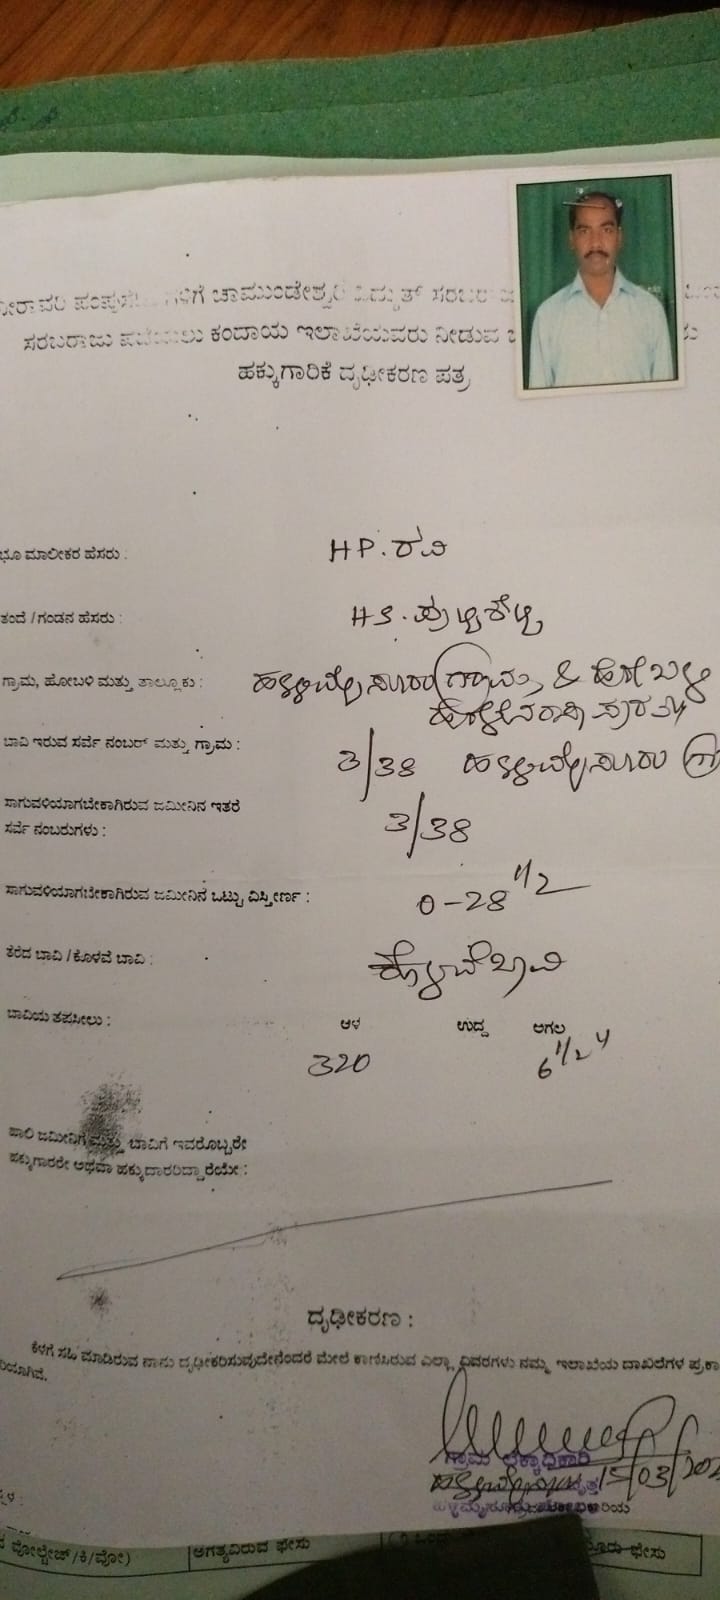 ನೀರಾವರಿ ಚಾಮುಂಡೇಶ್ವರಿ ವಿದ್ಯುತ್ ಸರಬರಾಜು
ಸರಬರಾಜು ಪಡೆಯಲು ಕಂದಾಯ ಇಲಾಖೆಯವರು ನೀಡುವ
ಹಕ್ಕುಗಾರಿಕೆ ದೃಢೀಕರಣ ಪತ್ರ
ಭೂ ಮಾಲೀಕರ ಹೆಸರು : HP. ರವಿ
ತಂದೆ / ಗಂಡನ ಹೆಸರು : HS.
ಗ್ರಾಮ, ಹೋಬಳಿ ಮತ್ತು ತಾಲ್ಲೂಕು : ಹಳ್ಳಿಮೈಸೂರು ಗ್ರಾಮ &
ಬಾವಿ ಇರುವ ಸರ್ವೆ ನಂಬರ್ ಮತ್ತು ಗ್ರಾಮ : 3/38 ಹಳ್ಳಿಮೈಸೂರು
ಸಾಗುವಳಿಯಾಗಬೇಕಾಗಿರುವ ಜಮೀನಿನ ಇತರೆ
ಸರ್ವೆ ನಂಬರುಗಳು : 3/38
ಸಾಗುವಳಿಯಾಗಬೇಕಾಗಿರುವ ಜಮೀನಿನ ಒಟ್ಟು ವಿಸ್ತೀರ್ಣ : 0-28 1/2
ತೆರೆದ ಬಾವಿ / ಕೊಳವೆ ಬಾವಿ : ಕೊಳವೆಬಾವಿ
ಬಾವಿಯ ತಪಸೀಲು : ಆಳ ಉದ್ದ ಅಗಲ
320 6 1/2 "
ಹಾಲಿ ಜಮೀನಿಗೆ ಮತ್ತು ಬಾವಿಗೆ ಇವರೊಬ್ಬರೇ
ಹಕ್ಕುಗಾರರೇ ಅಥವಾ ಹಕ್ಕುದಾರರಿದ್ದಾರೆಯೇ :
ದೃಢೀಕರಣ :
ಕೆಳಗೆ ಸಹಿ ಮಾಡಿರುವ ನಾನು ದೃಢೀಕರಿಸುವುದೇನೆಂದರೆ ಮೇಲೆ ಕಾಣಿಸಿರುವ ಎಲ್ಲಾ ವಿವರಗಳು ನಮ್ಮ ಇಲಾಖೆಯ ದಾಖಲೆಗಳ ಪ್ರಕಾ
ರಿಯಾಗಿವೆ.
ಗ್ರಾಮ ಲೆಕ್ಕಾಧಿಕಾರಿ
15/03/202
ವೋಲ್ಟೇಜ್/ಕಿ/ವೋ) ಅಗತ್ಯವಿರುವ ಫೇಸು ಫೇಸು